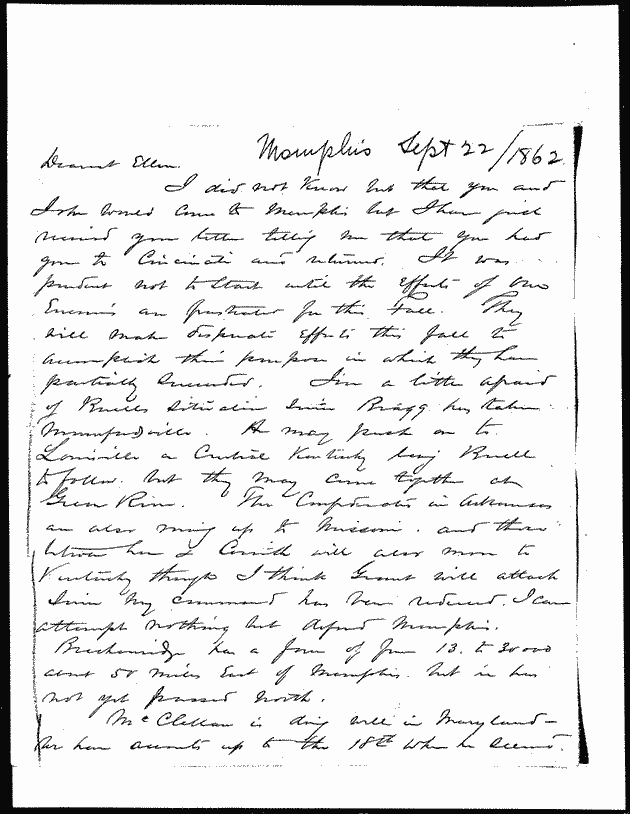 Memphis Sept 22/1862
Dearest Ellen
I did not know but that you and
John would come to Memphis but I have just
received your letter telling me that you had
gone to Cincinati and returned. It was
prudent not to start until the Efforts of our
Enemies are frustrated for this Fall. They
will make desperate Efforts this fall to
accomplish their purpose in which they have
partially succeeded. I'm a little afraid
of Buells situation since Bragg has taken
Munfordsville. He may push on to
Louisville or Central Kentucky being Buell
to follow. but they may come together at
Green River. The Confederates in Arkansas
are also moving up to Missouri. and those
between here & Corinth will also move to
Kentucky though I think Grant will attack
Since my command has been reduced. I can
attempt nothing but defend Memphis.
Breckenridge has a force of from 13. to 30000
about 50 miles East of Memphis. but in has
not yet passed North.
McClellan is doing well in Maryland -
We have accounts up to the 18th when he seemed